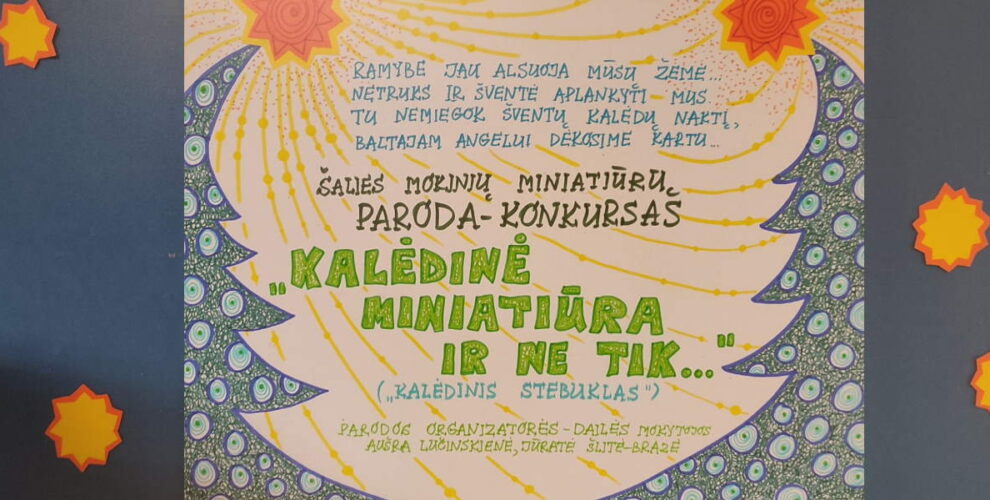 RAMYBE JAU ALSUOJA MŪSŲ ŽEMĖ...
NETRUKS IR ŠVENTĖ APLANKYTI MUS
TU NEMIEGOK ŠVENTŲ KALĖDŲ NAKTĮ,
BALTAJAM ANGELUI DĖKOSIME KARTU...
ŠALIES MOKINIŲ MINIATIŪRŲ
PARODA-KONKURSAS
„KALĖDINĖ
MINIATIŪRA
IR NE TIK..."
(„KALĖDINIS STEBUKLAS")
PARODOS ORGANIZATORĖS - DAILĖS MOKYTOJOS
AUŠRA LUČINSKIENĖ, JŪRATĖ ŠLITĖ-BRAZĖ